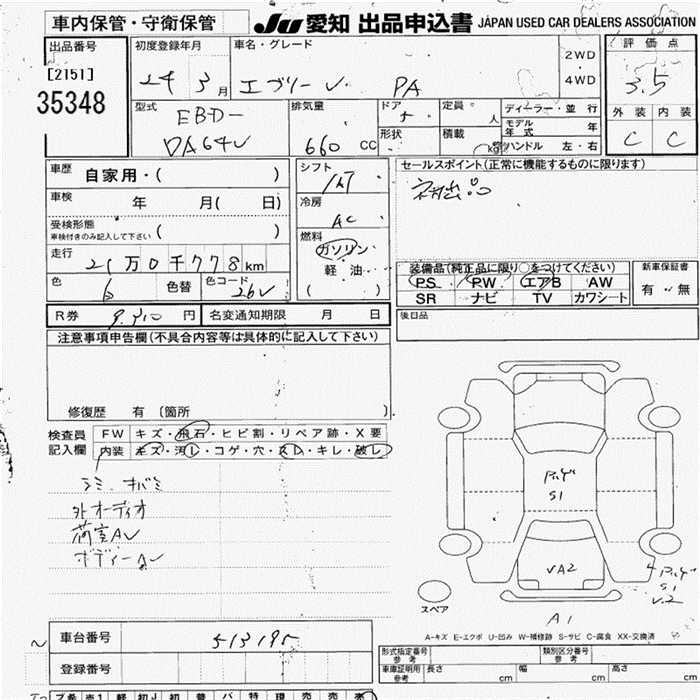 車内保管・守衛保管
JU 愛知 出品申込書 JAPAN USED CAR DEALERS ASSOCIATION
出品番号
[2151]
35348
初度登録年月
24 3月
車名・グレード
エブリー V PA
2WD
・
4WD
評価点
3.5
外装 内装
C C
型式
EBD-
DA64V
排気量
660 CC
ドア
形状
定員 人
積載 kg
ディーラー・並行
モデル年式 年
ハンドル 左・右
車歴 自家用・( )
車検 年 月( 日)
受検形態
車検付きのみ記入して下さい ( )
走行 21万0千778km
色 色替 色コード 26V
シフト
AT
冷房
AC
燃料
ガソリン・
軽油・
( )
セールスポイント(正常に機能するものに限ります)
装備品(純正品に限り○をつけてください)
PS PW エアB AW
SR ナビ TV カワシート
新車保証書
有・無
R券 9,310円
名変通知期限 月 日
後日品
注意事項申告欄(不具合内容等は具体的に記入して下さい)
修復歴 有 (箇所 )
検査員
記入欄
FW キズ・飛石・ヒビ割・リペア跡・X要
内装 キズ・汚レ・コゲ・穴・スレ・キレ・破レ
シミ、
外オーディオ
荷室AV
ボディー
S1
VA2
S1
V.2
A1
スペア
A-キズ E-エクボ U-凹み W-補修跡 S-サビ C-腐食 XX-交換済
車台番号 513195
登録番号
形式指定番号
参考
類別区分番号
参考
車庫証明用
参考
長さ cm 幅 cm 高さ cm